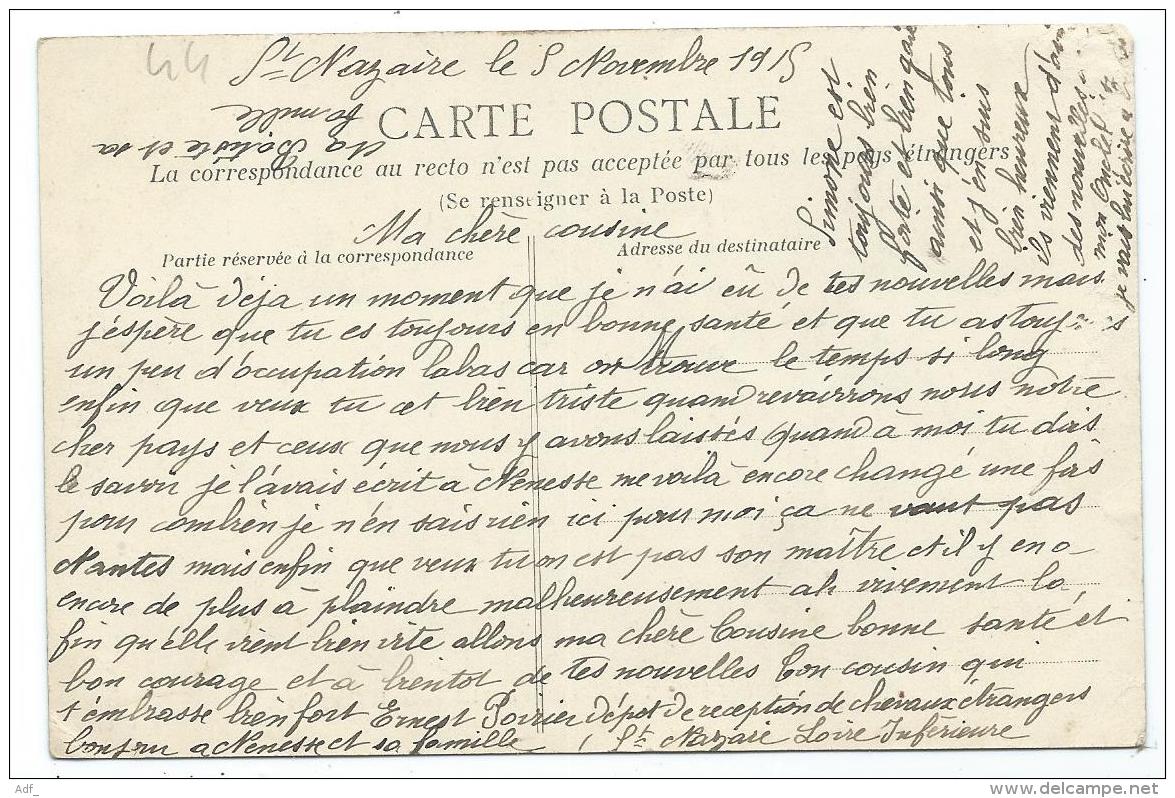 44
St Nazaire le 5 Novembre 1915
CARTE POSTALE
La correspondance au recto n'est pas acceptée par tous les pays étrangers
(Se renseigner à la Poste)
Ma chère cousine
Partie réservée à la correspondance
Adresse du destinataire
Voilà déja un moment que je n'ai eû de tes nouvelles mais
j'espère que tu es toujours en bonne santé et que tu as toujours
un peu d'occupation labas car on trouve le temps si long
enfin que veux tu cet bien triste quand revairrons nous notre
cher pays et ceux que nous y avons laissés Quand à moi tu dois
le savoir je l'avais écrit à Nenesse me voilà encore changé une fois
pour combien je n'en sais rien ici pour moi ça ne vaut pas
Nantes mais enfin que veux tu on est pas son maître et il y en a
encore de plus à plaindre malheureusement ah vivement la
fin qu'elle vient bien vite allons ma chère Cousine bonne santé et
bon courage et à bientot de tes nouvelles Ton cousin qui
t'embrasse bien fort Ernest Poirier dépot de reception de chevaux étrangers
bonjour a Nenesse et sa famille St Nazaire Loire Inférieure
Simone est
toujours bien
forte et bien gaie
ainsi que tous
et j'en suis
bien heureux
ils viennent d'avoir
des nouvelles
mon oncle
je vais lui écrire
et sa
famille
Adf_
www.delcampe.net